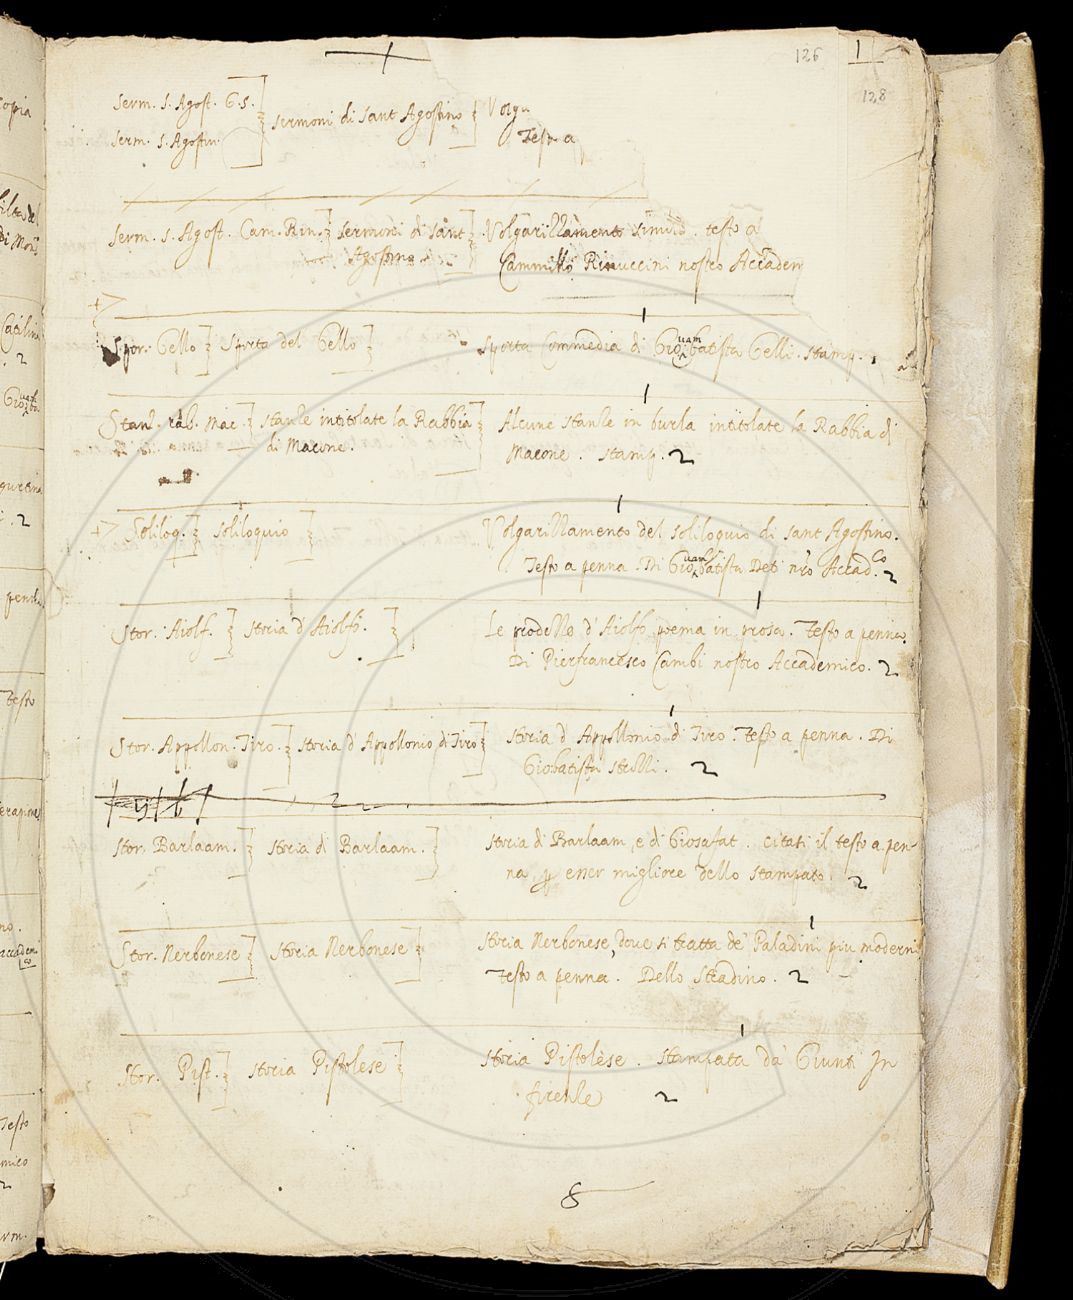 126
1
128
Serm. s. Agost. G.S. ] sermoni di sant Agostino ] Volga
Serm. s. Agostin. Testo a
Serm. s. Agost. Cam. Rin. ] sermoni di sant Agostino ] Volgarizzamento simile. testo a
Cammillo Rinuccini nostro Accadem
Spor. Gello ] Sporta del Gello ] Sporta Commedia di Giouambatista Gelli. stamp.
Stanz. rab. Mac. ] stanze intitolate la Rabbia di Macone. ] Alcune stanze in burla intitolate la Rabbia di
Macone. stamp. 2
Soliloq. ] soliloquio ] Volgarizzamento del soliloquio di sant Agostino.
Testo a penna. Di Giouambatista Deti nro Accad.co 2
Stor. Aiolf. ] storia d'Aiolfo. ] Le prodezze d'Aiolfo, poema in prosa. Testo a penna.
Di Pierfrancesco Cambi nostro Accademico. 2
Stor. Appollon. Tiro. ] storia d'Appollonio di Tiro ] storia d'Appollonio di Tiro. Testo a penna. Di
Giobatista Strozzi. 2
Stor. Barlaam. ] storia di Barlaam. ] storia di Barlaam, e di Giosafat. citati il testo a pen-
na, p esser migliore dello stampato. 2
Stor. Nerbonese ] storia Nerbonese ] storia Nerbonese, doue si tratta de' Paladini piu moderni
Testo a penna. Dello Stradino. 2
Stor. Pist. ] storia Pistolese ] storia Pistolese. stampata da' Giunti In
firenze 2
8